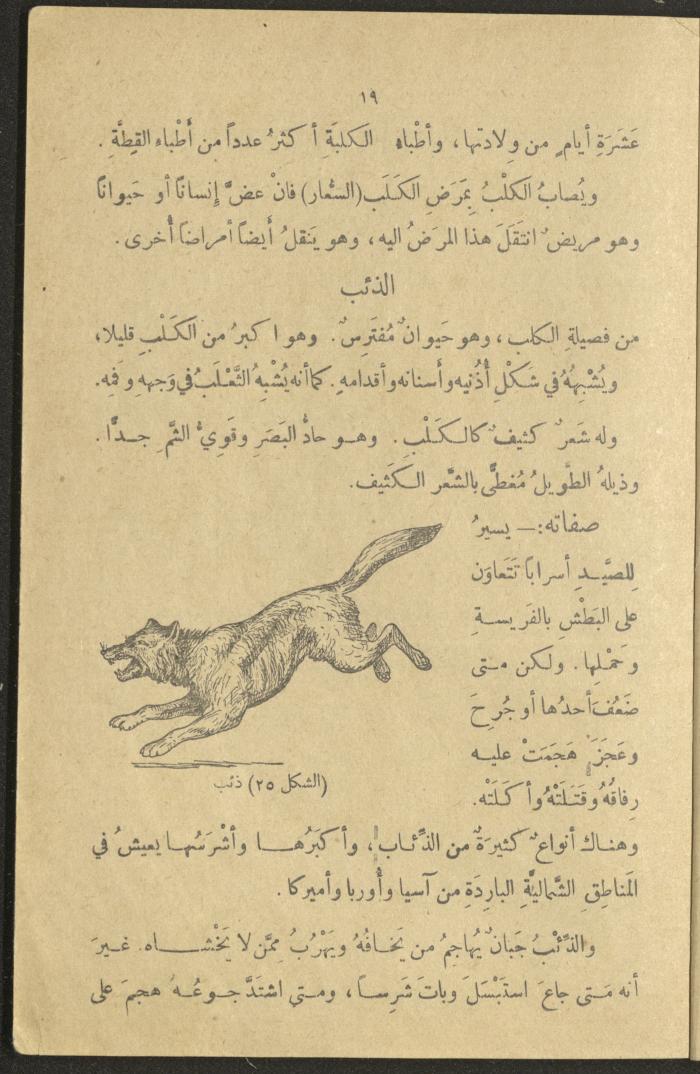 ١٩
عَشَرَةِ أيامٍ من وِلادتها، وأطْباء الكلبَةِ أكثرُ عدداً من أَطْباءِ القِطَّةِ .
ويُصابُ الكلْبُ بِمَرَضِ الكَلَب (السُّعار) فانْ عضَّ إنسانًا أو حَيوانًا
وهو مريضٌ انتقَلَ هذا المرَضُ اليه، وهو يَنقلُ أيضاً أمراضاً أُخرى .
الذئب
من فصيلةِ الكلب ، وهو حَيوانٌ مُفتَرِسٌ . وهو اكبرُ من الكَلْبِ قليلا،
ويُشْبِهُهُ في شَكْلِ أُذُنيه وأَسنانه وأقدامه. كما أنه يُشْبِهُ الثَّعْلَبُ في وَجههِ وفَمِه.
وله شَعرٌ كثيفٌ كالكَلْب . وهو حادُّ البَصَرِ وقَوِيُّ الشَّمِ جدًّا .
وذيلهُ الطَّويلُ مُغطًّى بالشَّعر الكَثيف.
صفاته:— يسيرُ
لِلصَّيدِ أسراباً تَتَعاوَن
على البَطْشِ بالفَريسةِ
وحَمْلِها . ولكن متى
ضَعُفَ أحدُها أو جُرِحَ
وعَجَزَ هَجَمَتْ عليه
رِفاقُهُ وقَتَلَتْهُ وأكَلَتْه.
(الشكل ٢٥) ذئب
وهناك أنواعٌ كثيرَةٌ من الذِّئاب، وأكبَرُها وأشْرَسُها يعيشُ في
المَناطِقِ الشَّماليَّةِ البارِدَةِ من آسيا وأُوربا وأميركا .
والذِّئْبُ جَبانٌ يُهاجِمُ من يَخافُهُ ويَهْرُبُ ممَّن لا يَخْشاه. غيرَ
أنه مَتى جاعَ استَبْسَلَ وباتَ شَرِساً ، ومتى اشتَدَّ جوعُهُ هجمَ على